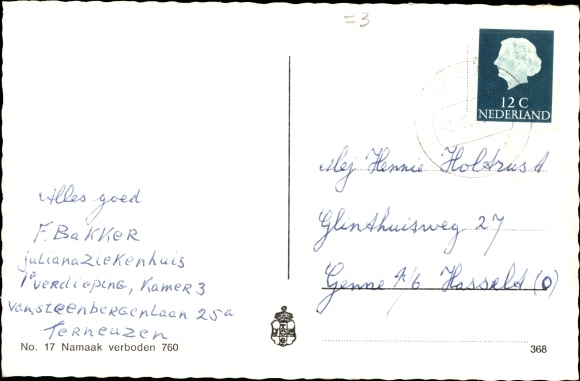 =3
12 C
NEDERLAND
Mej Hennie Holtrust
Glinthuisweg 27
Genne A/6 Hasselt (O)
Alles goed
F. BaKKER
julianaziekenhuis
1e verdieping, Kamer 3
van steenbergenlaan 25a
Terneuzen
No. 17 Namaak verboden 760
368